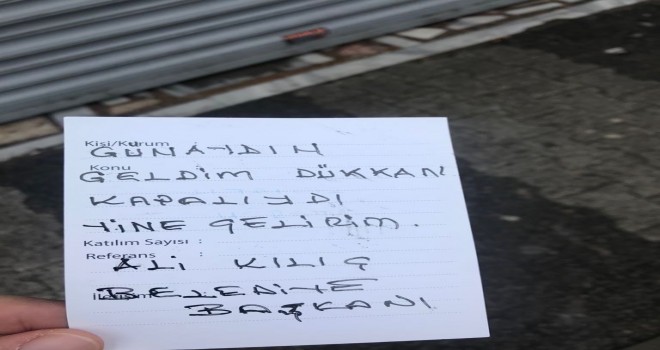 Kişi/Kurum
GÜNAYDIN
Konu
GELDİM DÜKKAN
KAPALIYDI
YİNE GELİRİM.
Katılım Sayısı :
Referans :
ALİ KILIÇ
BELEDİYE
BAŞKANI